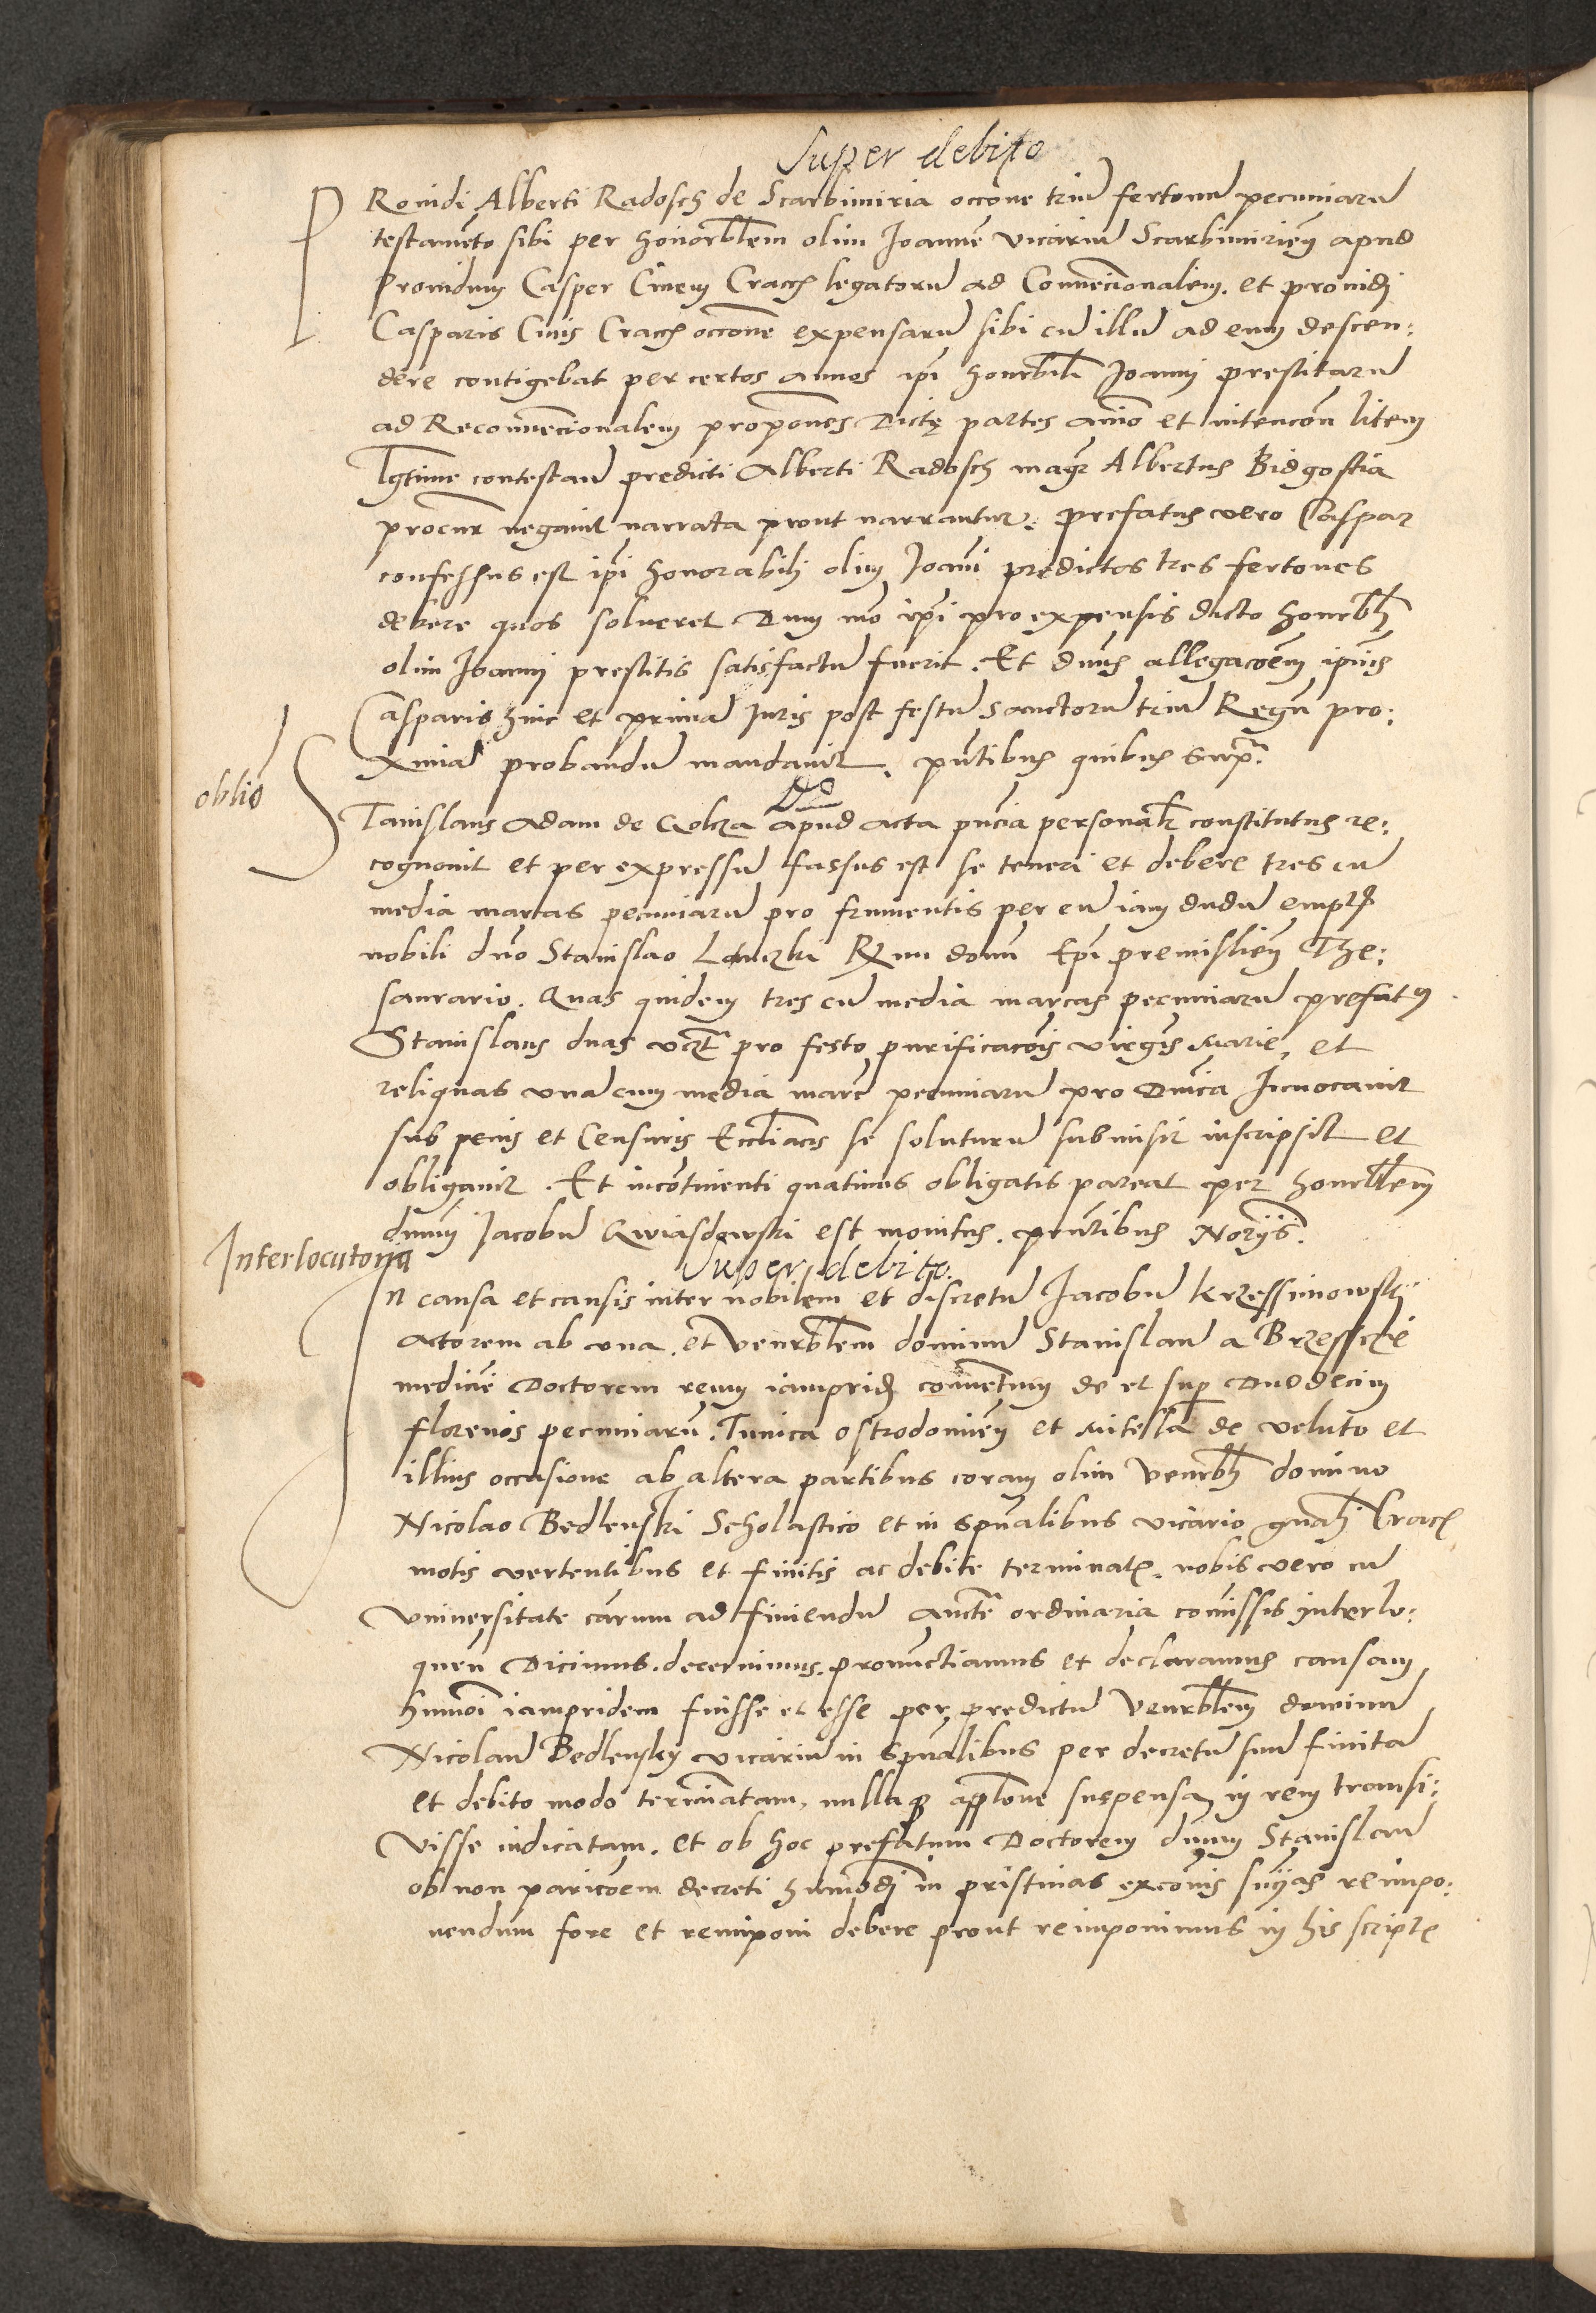 Super debito
PRouidi Alberti Radosch de Scarbimiria occone triu fertonu pecuniaru
testameto sibi per honorblem olim Joanne vicariu Scarbimirien apud
Prouidum Casper Ciuem Crac legatoru ad Conuecionalem. et prouidi
Casparis Ciuis Crac occone expensaru sibi cu illu ad eum descen:
dere contigebat per certos annos ipi honorbili Joanni prestitaru
ad Reconuecionalem propones Dicte partes aio et intencon litem
lgtime contestan predicti Alberti Radosch magr Albertus Bidgostia
procur negauit narrata prout narrantur. prefatus vero Caspar
confessus est ipi honorabili olim Joani predictos tres fertones
debere quos solueret Dum mo ipi pro expensis dicto honorbli
olim Joanni prestitis satisfactu fuerit. Et dnus allegacoem ipius
Casparis hinc et prima Juris post festu sanctoru triu Regu pro:
xima probandu mandauit. pntibus quibus supra.
oblio
Do
STanislaus Adam de Qolcza apud acta pncia personalr constitutus re:
cognouit et per expressu fassus est se teneri et debere tres cu
media marcas pecuniaru pro frumentis per eu iam dudu empt
nobili dno Stanislao Lanczki Rmi domi Epi premislien The:
saurario. Quas quidem tres cu media marcas pecuniaru prefatus
Stanislaus duas vczt pro festo purificacois virgis Marie, et
reliquas vna cum media marc pecuniaru pro Dnica Inuocauit
sub penis et Censuris Eccliacis se soluturu submisit inscripsit et
obligauit. Et incotinenti quatinus obligatis pareat per honorblem
dnum Jacobu Qwiasdowski est monitus. pntibus Norijs.
Interlocutoria
Super debito.
In causa et causis inter nobilem et discretu Jacobu krzessimowskj
actorem ab vna. et venerblem dominu Stanislau a Brzessczie
medicie Doctorem reum iamprid conuentum de et sup Duodecim
florenis pecuniaru. Tunica ostrodomien et mitella de veluto et
illius occasione ab altera partibus coram olim venerbli domino
Nicolao Bedlenski Scholastico et in spualibus vicario gnali Crac
motis vertentibus et finitis ac debite terminat. nobis vero cu
vniuersitate carum ad finiendu aucte ordinaria comissis interlo:
quen Dicimus. decernimus. pronuctiamus et declaramus causam
hmoi iampridem fuisse et esse per predictu venerblem dominu
Nicolau Bedlensky vicariu in spualibus per decretu suu finita
et debito modo termiatam, nullaque applone suspensa in rem transi:
uisse iudicatam. et ob hoc prefatum Doctorem dnum Stanislau
ob non paricoem decreti humodi in pristinas excois snias reimpo:
nendum fore et reimponi debere prout reimponimus in his script